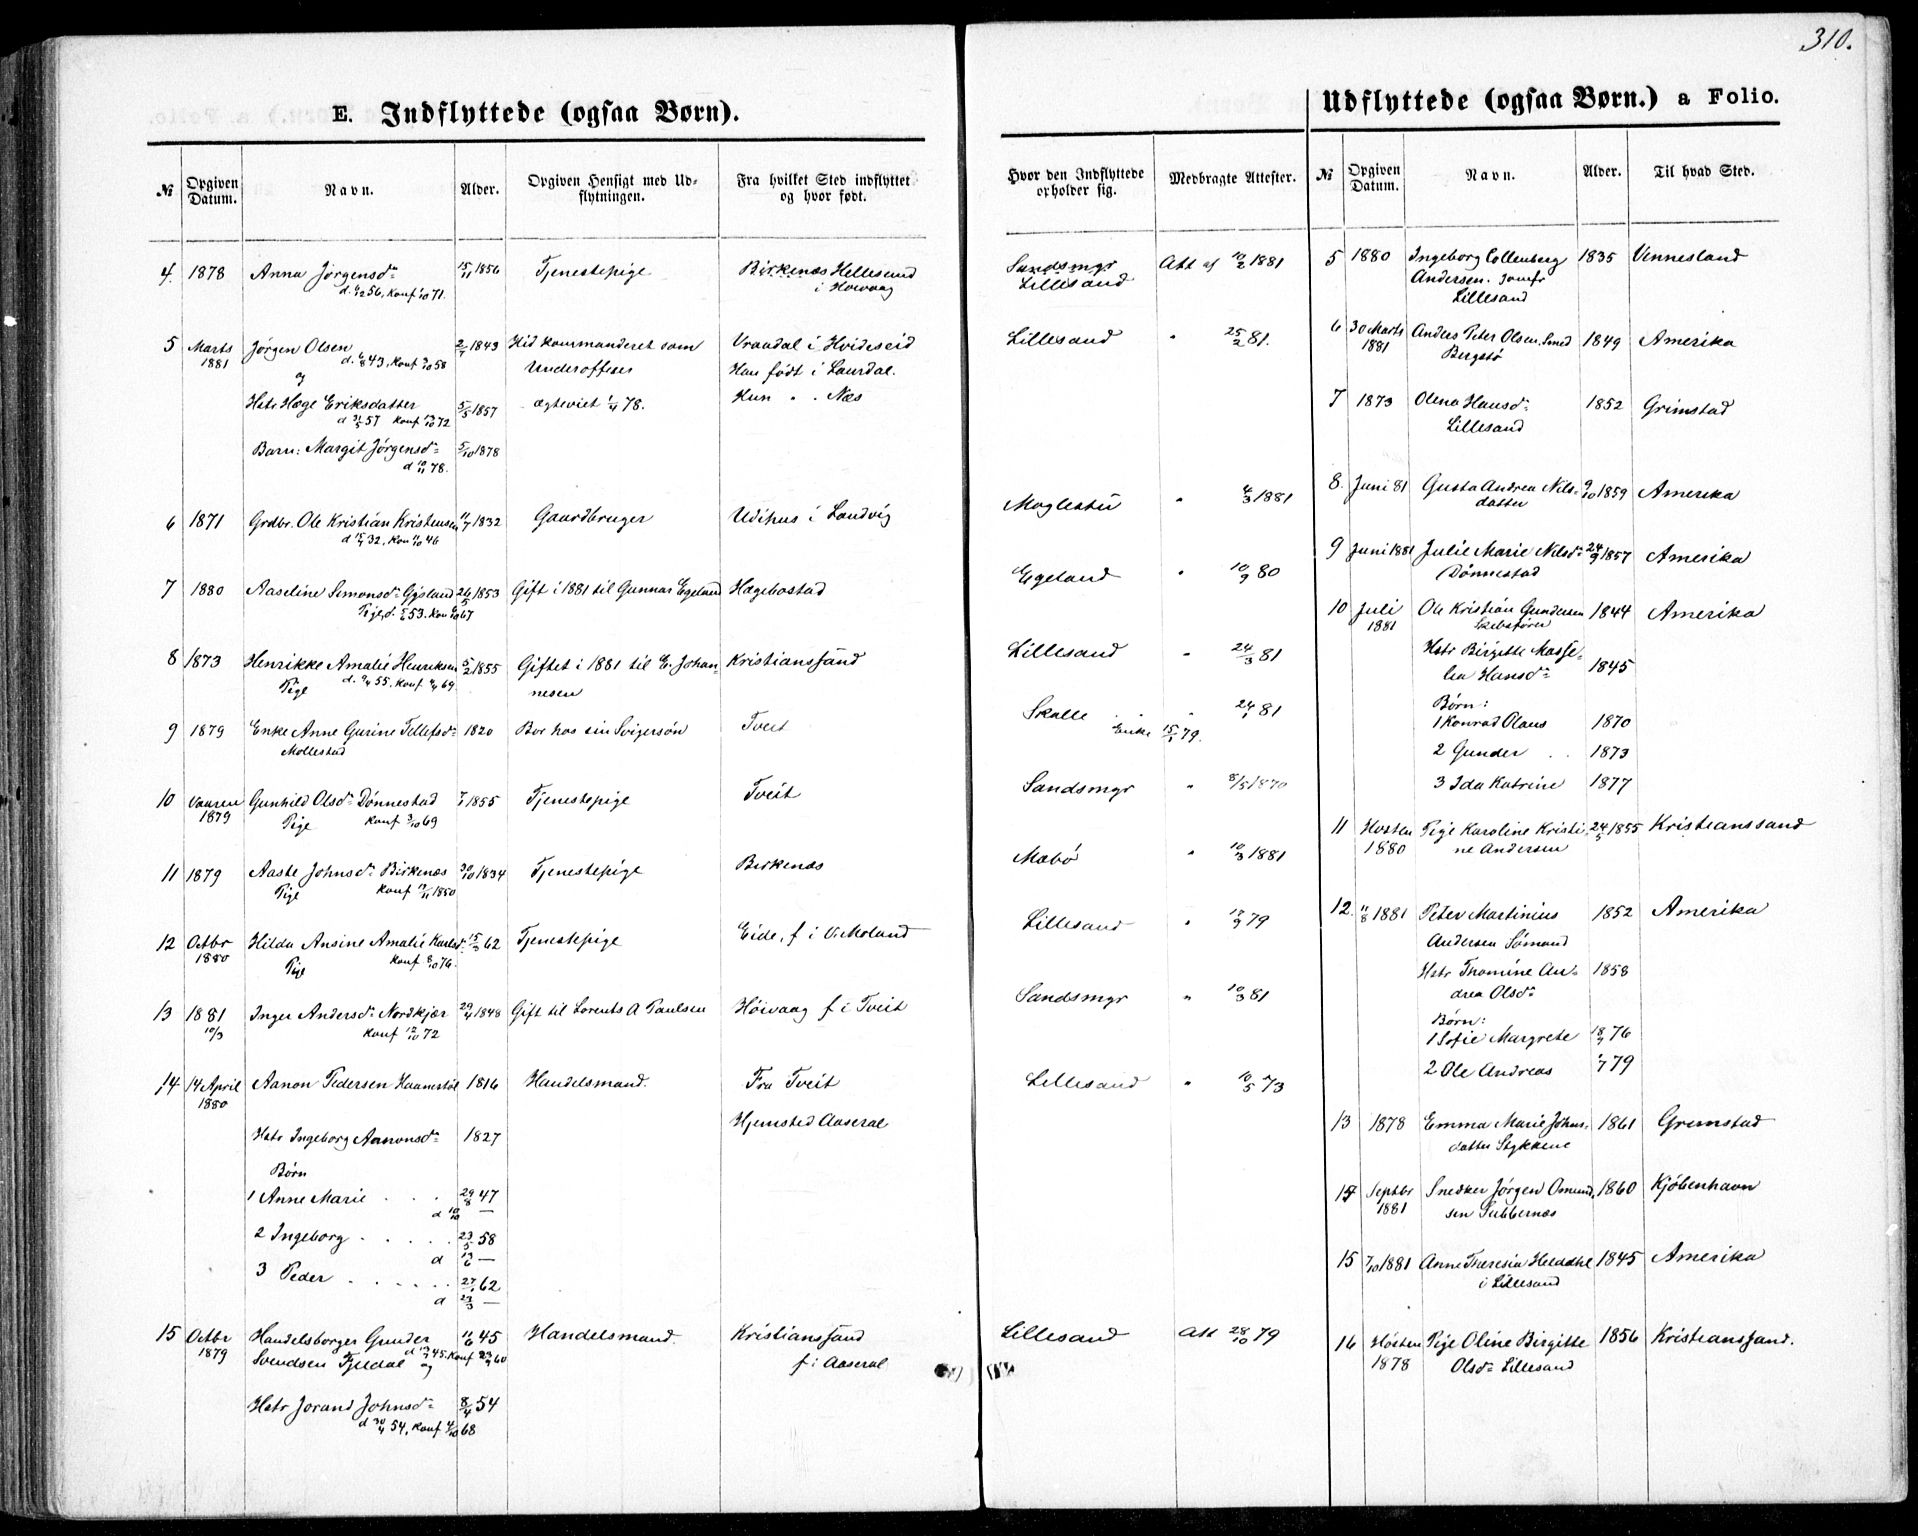 310.
E. Indflyttede (ogsaa Børn).
№ Opgiven Datum. Navn. Alder. Opgiven Hensigt med Udflytningen. Fra hvilket Sted indflyttet og hvor født. Hvor den Indflyttede opholder sig. Medbragte Attester.
4. 1878 Anna Jørgensd. 15/11 1856 Tjenestepige Birkenæs Hellesund Sandsmyr Att af 12/2 1881
56, Konf 71. i Høivaag Lillesand
5 Marts Jørgen Olsen 2/7 1843 Hid kommanderet som Vraadal i Hvideseid Lillesand " 25/2 81.
1881 d. 6/8 43, Konf 58 Underofficer Han født i Laurdal.
og
Hstr Hæge Eriksdatter 5/5 1857 ægteviet 1/4 78. Hun " . Næs
d 31/5 57 Konf 13/10 72
Barn: Margit Jørgensd 5/10 1878
d 10/11 78.
6 1871 Grdbr. Ole Kristian Kristensen 11/7 1832 Gaardbruger Udihus i Landvig Moglestu " 4/3 1881
d 15/7 32, Kon 11/10 46
7 1880 Aaseline Simonsd. Gysland 26/5 1853 Gift i 1881 til Gunnar Egeland Hægebostad Egeland " 10/9 80
Pige, d. 53. Kon 67
8 1873 Henrikke Amalie Henriksen 5/2 1855 Giftet i 1881 til E. Johan- Kristianssand Lillesand " 24/3 81
Pige d. 9/4 55. Konf 69. nesen
9 1879 Enke Anne Gurine Tellefsd. 1820 Bor hos sin Svigersøn Tveit Skalle " 24/1 81
Mollestad Enke 15/1 79.
10 Vaaren Gunhild Olsd. Dønnestad 7/1 1855 Tjenestepige Tveit Sandsmyr " 8/5 1870
1879 Pige Konf 3/10 69
11 1879 Aaste Johnsd. Birkenæs 30/10 1834 Tjenestepige Birkenæs Mæbø " 10/3 1881
Pige Konf 1850
12 Octbr Hilda Ansine Amalie Karlsd. 15/3 62 Tjenestepige Eide, f i V. Moland Lillesand " 12/9 79
1880 Pige Konf 8/10 76.
13 1881 Inger Andersd. Nordkjær 29/4 1848 Gift til Lorents A Paulsen Høivaag f i Tveit Sandsmyr " 10/3 81
10/3 Konf 12/10 72
14 14 April Aanon Pedersen Haamestøl 1816 Handelsmand. Fra Tveit Lillesand " 10/5 73
1880 Hjemsted Aaseral
Hstr Ingeborg Aanonsd. 1827
Børn
1 Anne Marie . . . 29/8 47
d 10/10 —
2 Ingeborg . . . . . 23/5 58
d 13/6 —
3 Peder . . . . . . 27/1 62
d 23/3 —
15 Octbr Handelsborger Gunder 11/6 45 Handelsmand. Kristianssand Lillesand Att 28/10 79
1879 Svendsen Fjeldal og d 13/7 45. Konf 23/9 60 f i Aaseral
Hstr Jorand Johnsd. 8/4 54
d 30/4 54, Konf 4/10 68
Udflyttede (ogsaa Børn.) a Folio.
№ Opgiven Datum. Navn. Alder. Til hvad Sted.
5 1880 Ingeborg Collenberg 1835 Vennesland
Andersen. Jomfr
Lillesand
6 30 Marts Anders Peter Olsen, Smed 1849 Amerika
1881 Bergstø
7 1873 Olena Hansd. 1852 Grimstad
Lillesand
8. Juni 81 Gusta Andrea Nils- 9/10 1859 Amerika
datter
9 Juni 1881 Julie Marie Nilsd. 24/9 1857 Amerika
Dønnestad
10 Juli Ole Kristian Gundersen 1844 Amerika
1881 Skibsfører
Hstr Birgitte Masse-
lia Hansd. 1845
Børn:
1 Konrad Olaus 1870
2 Gunder . . 1873
3 Ida Katrine 1877
11 Høsten Pige Karoline Kristi- 24/5 1855 Kristianssand
1880 ne Andersen
12. 11/8 1881 Peter Martinius 1852 Amerika
Andersen Sømand
Hstr Thomine An- 1858
drea Olsd.
Børn:
1 Sofie Margrete 18/7 76
2 Ole Andreas 79
13 1878 Emma Marie Johns- 1861 Grimstad
datter Stykkene
14 Septbr Snedker Jørgen Omund- 1860 Kjøbenhavn
1881 sen Tubbernæs
15 7/10 1881 Anne Theresia Helddhl 1845 Amerika
i Lillesand
16 Høsten Pige Oline Birgitte 1856 Kristianssand.
1878 Olsd. Lillesand